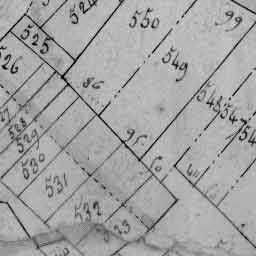 524
550
99
525
526
549
86
548
547
54
528
529
530
95
60
40
531
532